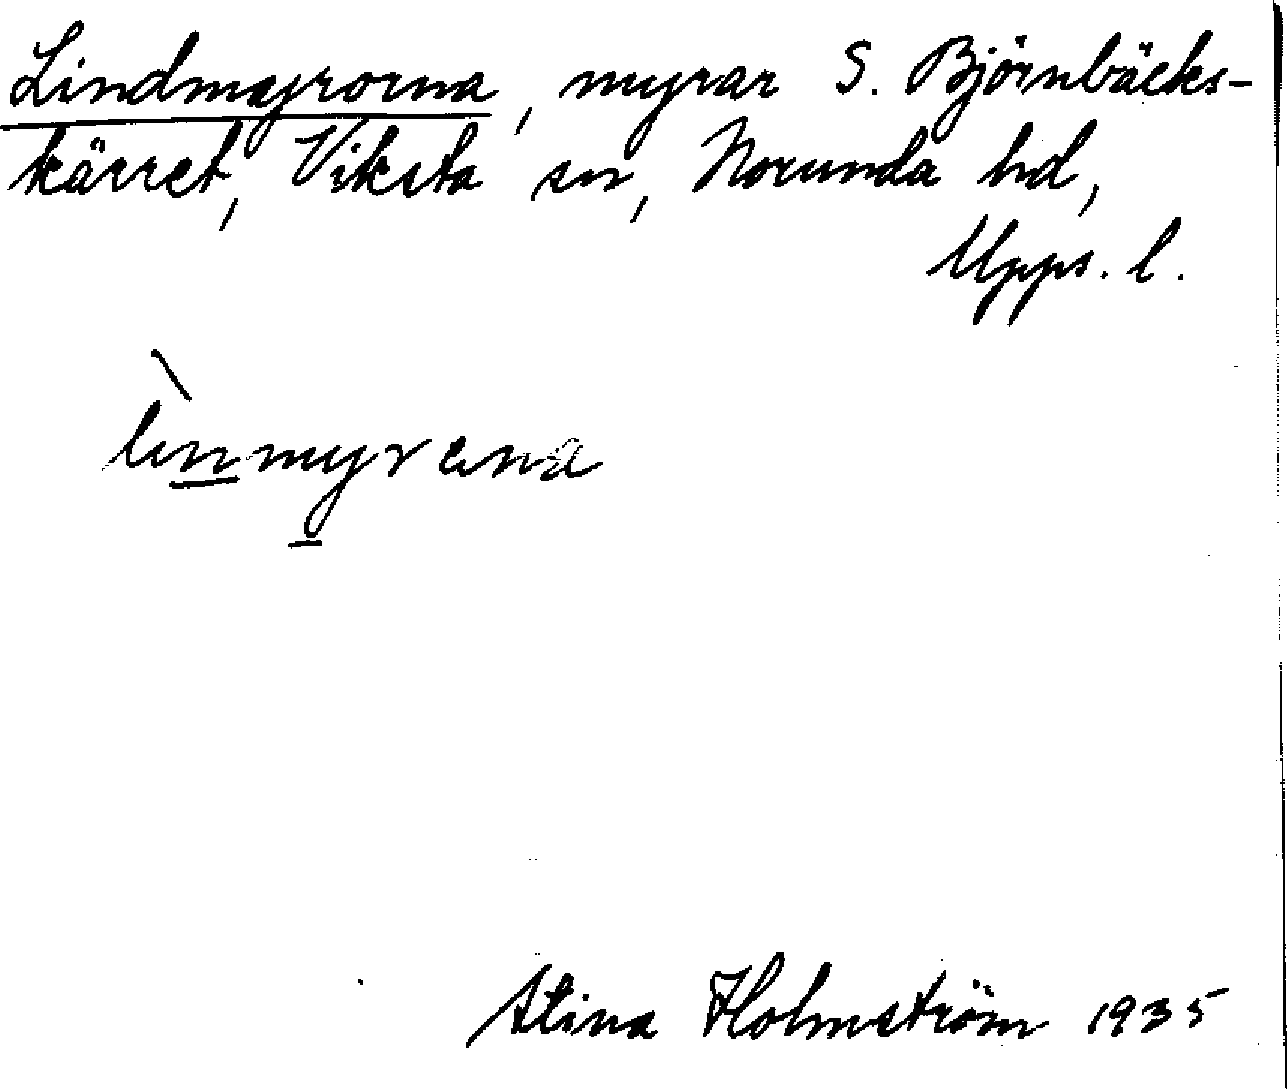 Lindmyrorna, myrar S. Björnbäcks-
kärret, Viksta sn, Norunda hd,
Upps. l.
lìnmyrena
Stina Holmström 1935